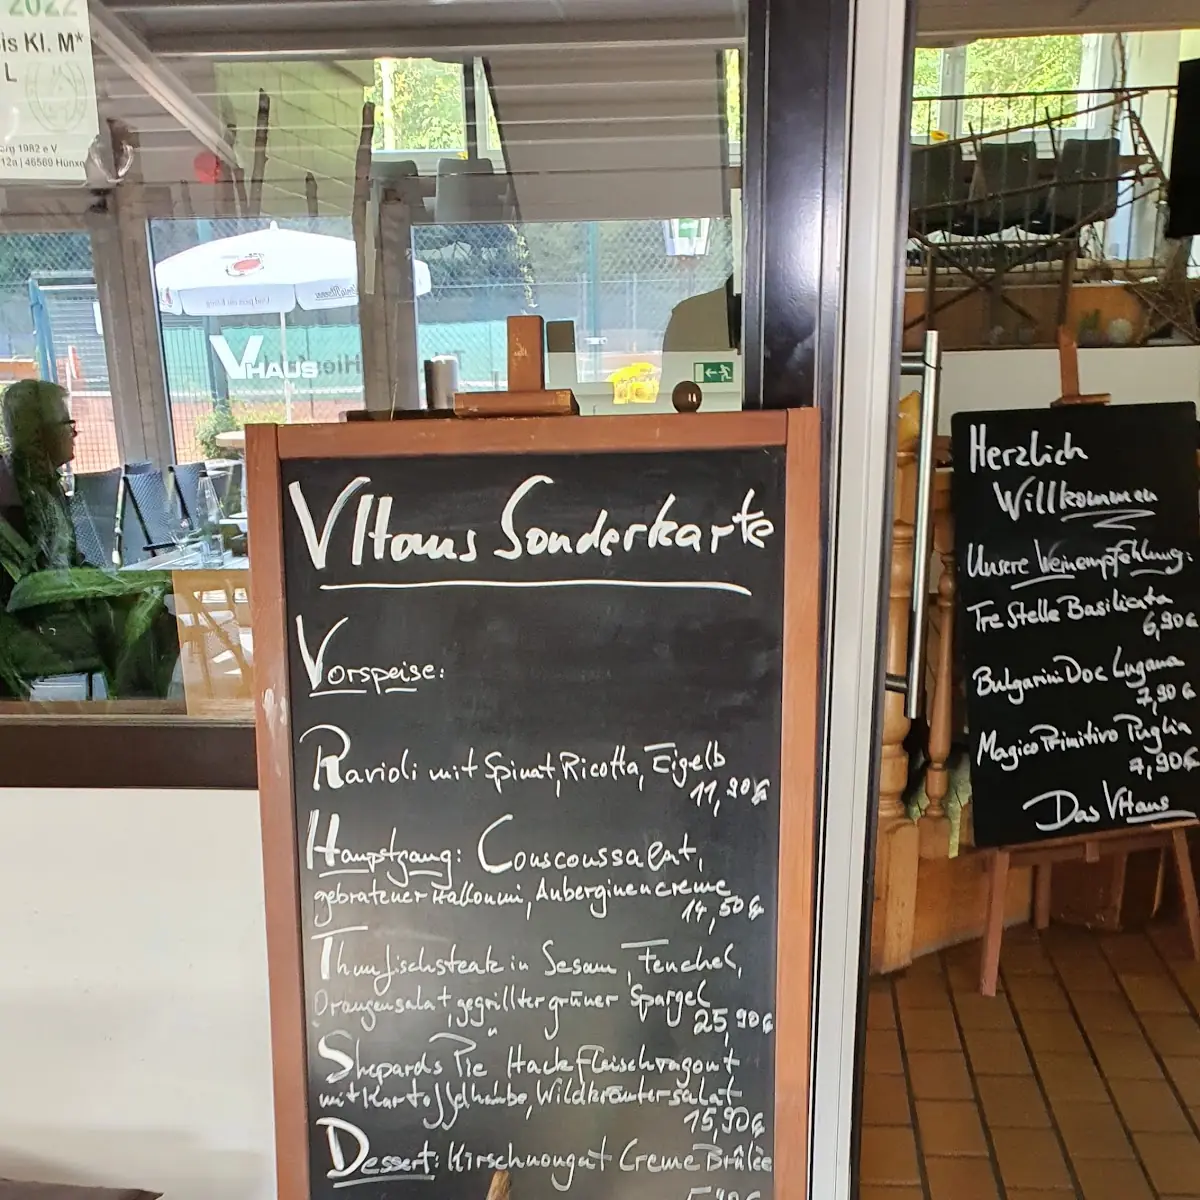 2022
is Kl. M*
L
org 1982 e V
12a | 46569 Hünx
VHAUS
VHaus Sonderkarte
Vorspeise:
Ravioli mit Spinat, Ricotta, Eigelb
11,90€
Hauptgang: Couscoussalat,
gebratener Halloumi, Auberginencreme
14,50€
Thunfischsteak in Sesam, Fenchel,
Orangensalat, gegrillter grüner Spargel
25,90€
Shepards Pie Hackfleischragout
mit Kartoffelhaube, Wildkräutersalat
15,90€
Dessert: Kirschnougat Creme Brûlée
Herzlich
Willkommen
Unsere Weinempfehlung:
Tre Stelle Basilicata
6,90€
Bulgarini Doc Lugana
7,90€
Magico Primitivo Puglia
7,90€
Das VHaus